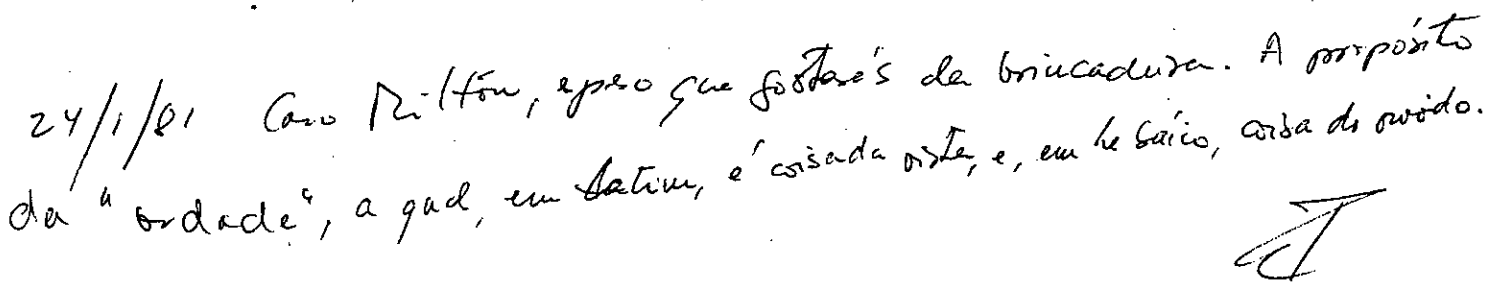 24/1/81 Caro Milton, espero que gostarás da brincadeira. A propósito
da "verdade", a qual, em latim, é coisa da vista, e, em hebraico, coisa do ouvido.